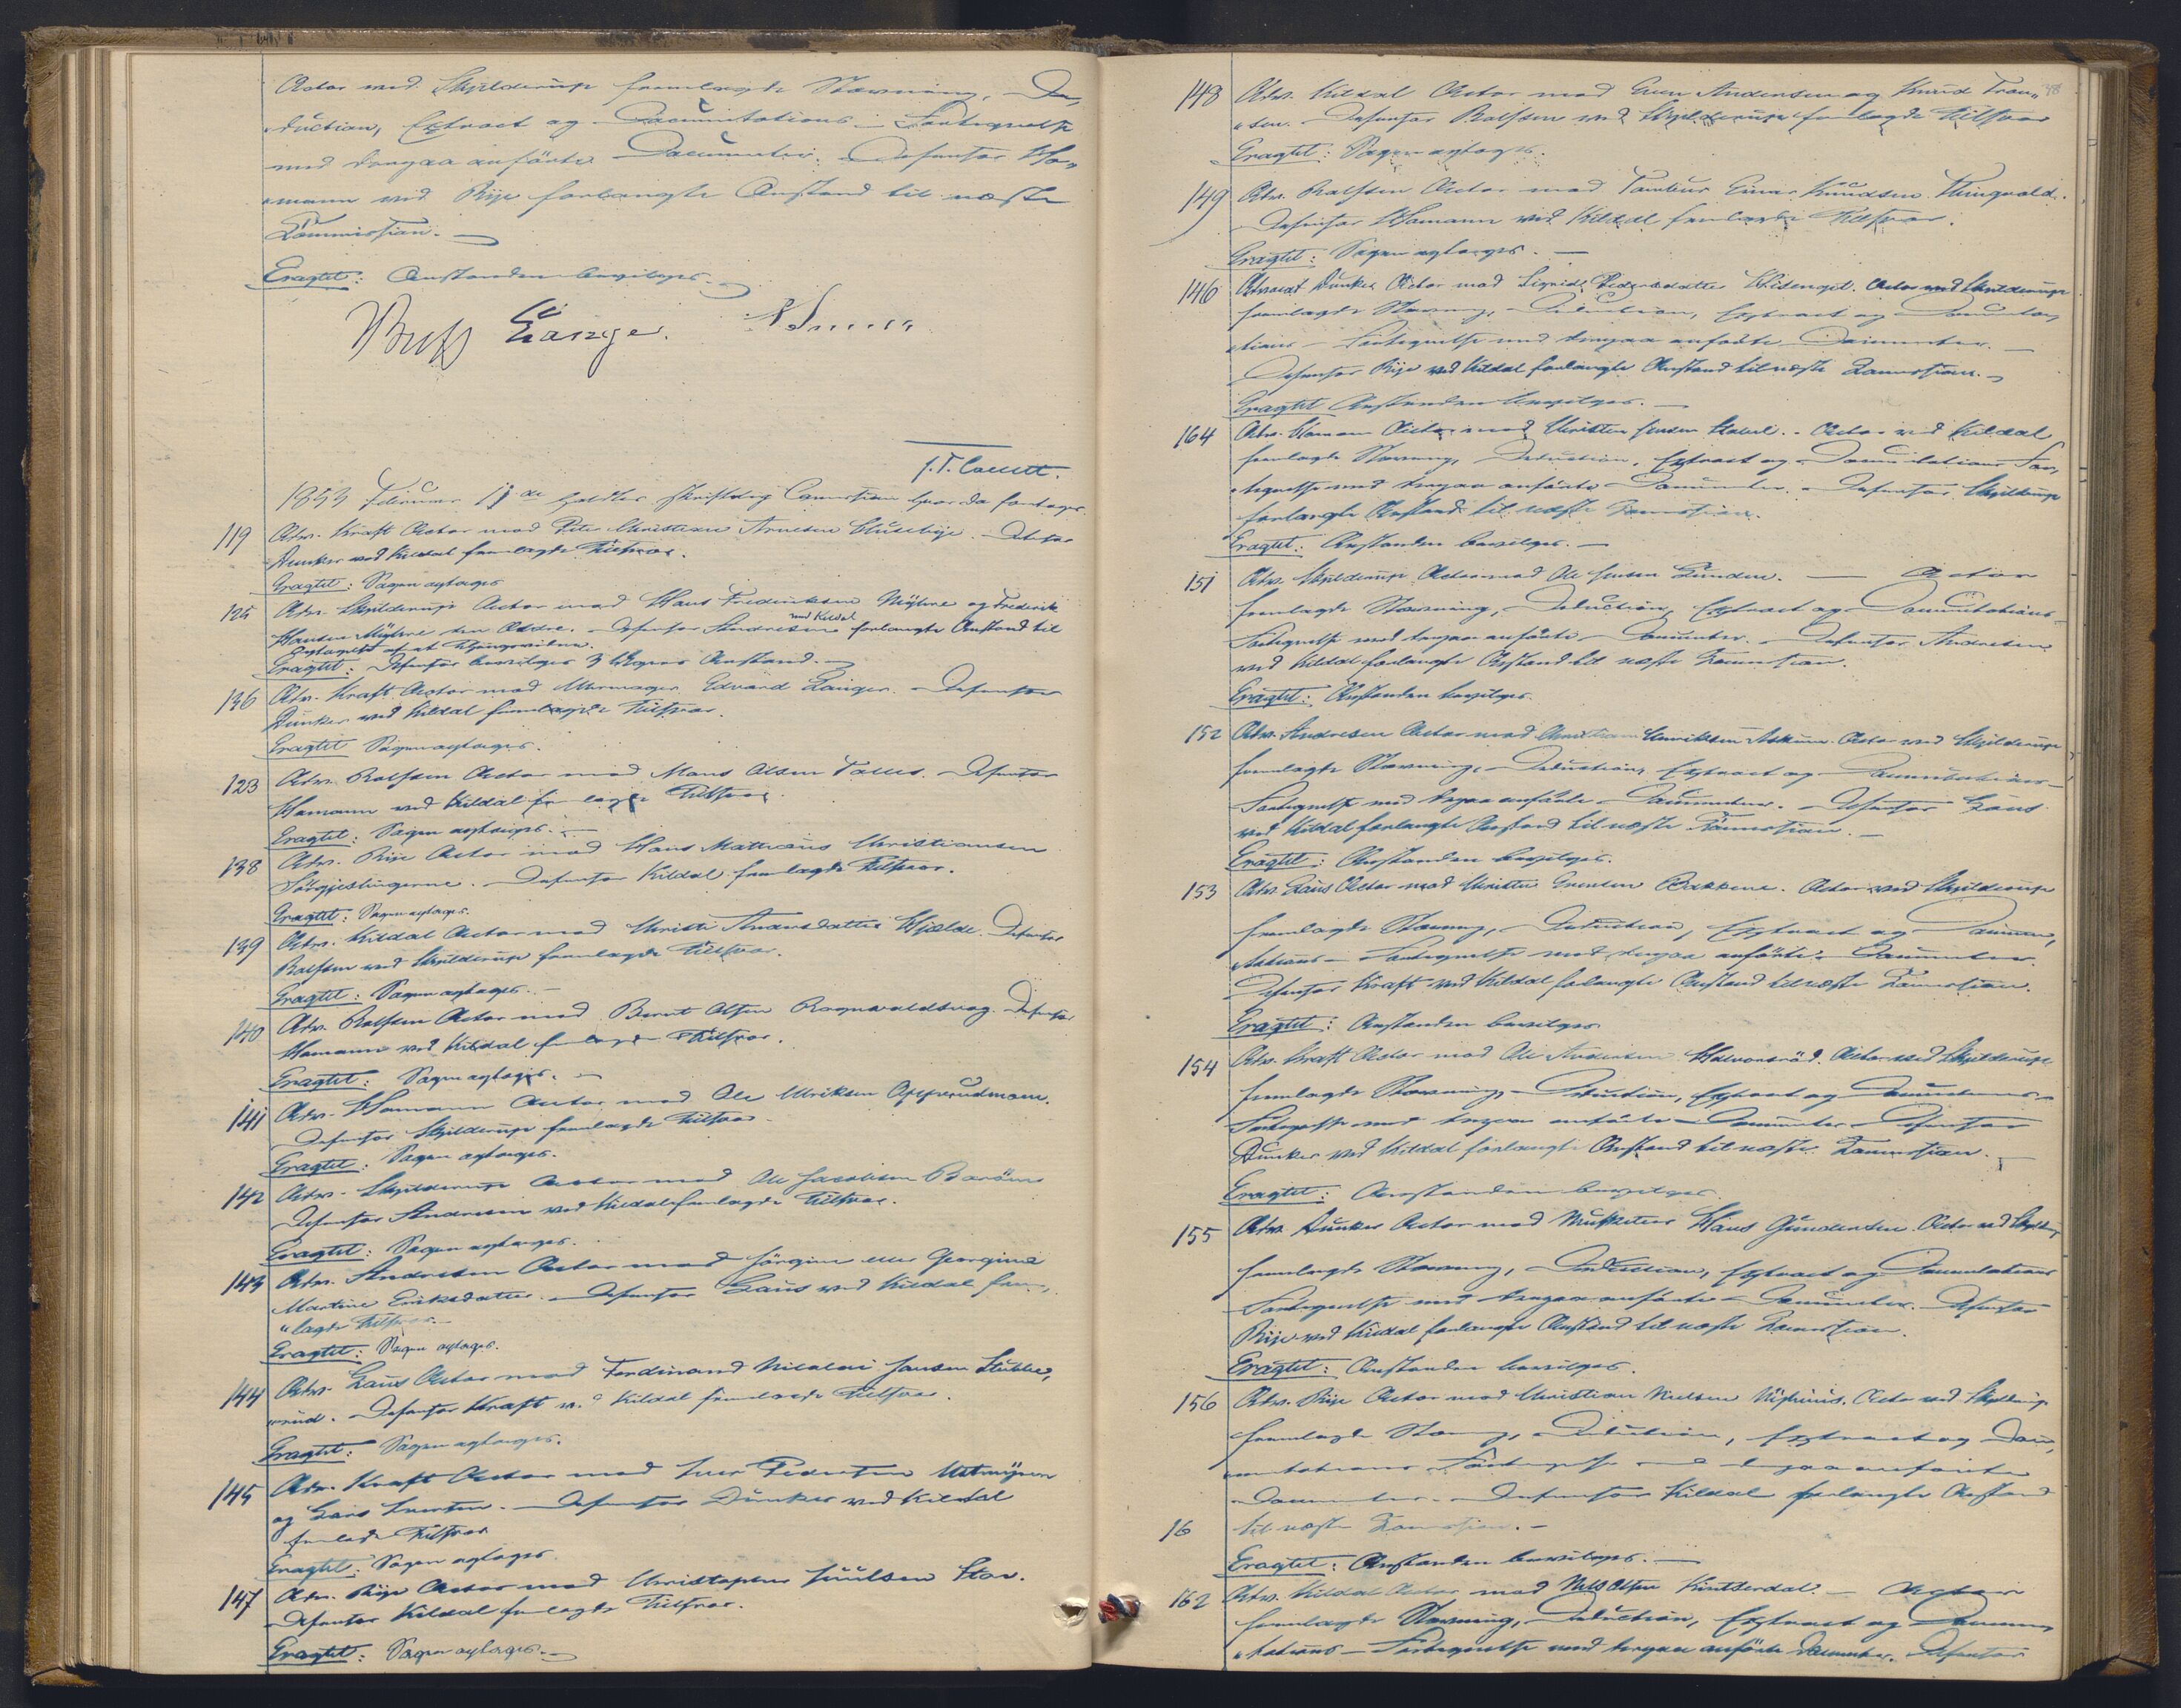 Actor ved Skjilderup fremlagde Stævning, De„
„duction, Extract og Documentations-Fortegnelse
med derpaa anførte Documenter. Defensor Ha„
„mann ved Rije forlangte Anstand til næste
Commission.
Eragtet: Anstanden bevilges.
Lange.
J. T. Collett.
1853 Februar holdtes skriftlig Commission hvor da foretoges
119 Adv. Kraft Actor mod Peter Christian Arnesen Huseby. Defensor
Dunker ved Kildal fremlagde Tilsvar.
Eragtet: Sagen optages
125 Adv. Skjilderup Actor mod Hans Frederiksen Myhre og Frederik
Hansen Myhre den Ældre. Defensor Andresen ved Kildal forlangte Anstand til
Eragtet: Defensor bevilges 3 Ugers Anstand.
136 Adv. Kraft Actor mod Uhrmager Edvard Langer. Defensor
Dunker ved Kildal fremlagde Tilsvar.
Eragtet Sagen optages.
123 Adv. Rolfsen Actor mod Mons Olsen. Defensor
Hamann ved Kildal fremlagde Tilsvar
Eragtet: Sagen optages.
138 Adv. Rije Actor mod Hans Mathæus Christiansen
Defensor Kildal fremlagde Tilsvar.
Eragtet: Sagen optages.
139 Adv. Kildal Actor mod Christi Andersdatter Hjelde. Defensor
Rolfsen ved Skjilderup fremlagde Tilsvar.
Eragtet: Sagen optages.
140 Adv. Rolfsen Actor mod Bernt Olsen Rognvaldsvog. Defensor
Hamann ved Kildal fremlagde Tilsvar.
Eragtet: Sagen optages.
141 Adv. Hamann Actor mod Ole Ulriksen
Defensor Skjilderup fremlagde Tilsvar
Eragtet: Sagen optages.
142 Adv. Skjilderup Actor mod Ole Jacobsen
Defensor Andresen ved Kildal fremlagde Tilsvar.
Eragtet: Sagen optages.
143 Adv. Andresen Actor mod Jørgine eller Georgine
Martine Eriksdatter. Defensor Lous ved Kildal frem„
„lagde Tilsvar.
Eragtet: Sagen optages.
144 Adv. Lous Actor mod Ferdinand Nicolai Jansen Stubbe„
„rud. Defensor Kraft v. Kildal fremlagde Tilsvar.
Eragtet: Sagen optages.
145 Adv. Kraft Actor mod Iver Pedersen
og Lars Iversen. Defensor Dunker ved Kildal
fremlagde Tilsvar
Eragtet: Sagen optages.
147 Adv. Rije Actor mod Christopher Juulsen Stav.
Defensor Kildal fremlagde Tilsvar.
Eragtet: Sagen optages.
148 Adv. Kildal Actor mod Even Andersen og Knud Tron„
„sen. Defensor Rolfsen ved Skjilderup fremlagde Tilsvar
Eragtet: Sagen optages.
149 Adv. Rolfsen Actor mod Tambur Einar Knudsen Thingvold.
Defensor Hamann ved Kildal fremlagde Tilsvar.
Eragtet: Sagen optages.
146 Advocat Dunker Actor mod Sigrid Pedersdatter. Actor ved Skjilderup
fremlagde Stævning, Deduction, Extract og Documenta„
„tions-Fortegnelse med derpaa anførte Documenter.
Defensor Rije ved Kildal forlangte Anstand til næste Commission.
Eragtet Anstanden bevilges.
164 Adv. Hamann Actor mod Christen Jensen. Actor ved Kildal
fremlagde Stævning, Deduction, Extract og Documentations For„
„tegnelse med derpaa anførte Documenter. Defensor Skjilderup
forlangte Anstand til næste Commission.
Eragtet: Anstanden bevilges.
151 Adv. Skjilderup Actor mod Ole Jensen Lunden. Actor
fremlagde Stævning, Deduction, Extract og Documentations
Fortegnelse med derpaa anførte Documenter. Defensor Andresen
ved Kildal forlangte Anstand til næste Commission.
Eragtet: Anstanden bevilges.
152 Adv. Andresen Actor mod Henriksen Askim. Actor ved Skjilderup
fremlagde Stævning, Deduction, Extract og Documentations-
Fortegnelse med derpaa anførte Documenter. Defensor Lous
ved Kildal forlangte Anstand til næste Commission.
Eragtet: Anstanden bevilges.
153 Adv. Lous Actor mod Christen Evensen Bakkene. Actor ved Skjilderup
fremlagde Stævning, Deduction, Extract og Documen„
„tations-Fortegnelse med derpaa anførte Documenter.
Defensor Kraft ved Kildal forlangte Anstand til næste Commission.
Eragtet: Anstanden bevilges
154 Adv. Kraft Actor mod Ole Andersen Halvorsrød. Actor ved Skjilderup
fremlagde Stævning, Deduction, Extract og Documentations-
Fortegnelse med derpaa anførte Documenter. Defensor
Dunker ved Kildal forlangte Anstand til næste Commission.
Eragtet: Anstanden bevilges.
155 Adv. Dunker Actor mod Musketeer Hans Gundersen. Actor ved Skjilderup
fremlagde Stævning, Deduction, Extract og Documentations
Fortegnelse med derpaa anførte Documenter. Defensor
Rije ved Kildal forlangte Anstand til næste Commission.
Eragtet: Anstanden bevilges.
156 Adv. Rije Actor mod Christian Nielsen. Actor ved Skjilderup
fremlagde Stævning, Deduction, Extract og Docu„
„mentations Fortegnelse med derpaa anførte
Documenter. Defensor Kildal forlangte Anstand
16 til næste Commission.
Eragtet: Anstanden bevilges.
162 Adv. Kildal Actor mod Nils Olsen. Actor
fremlagde Stævning, Deduction, Extract og Documen„
„tations-Fortegnelse med derpaa anførte Documenter. Defensor